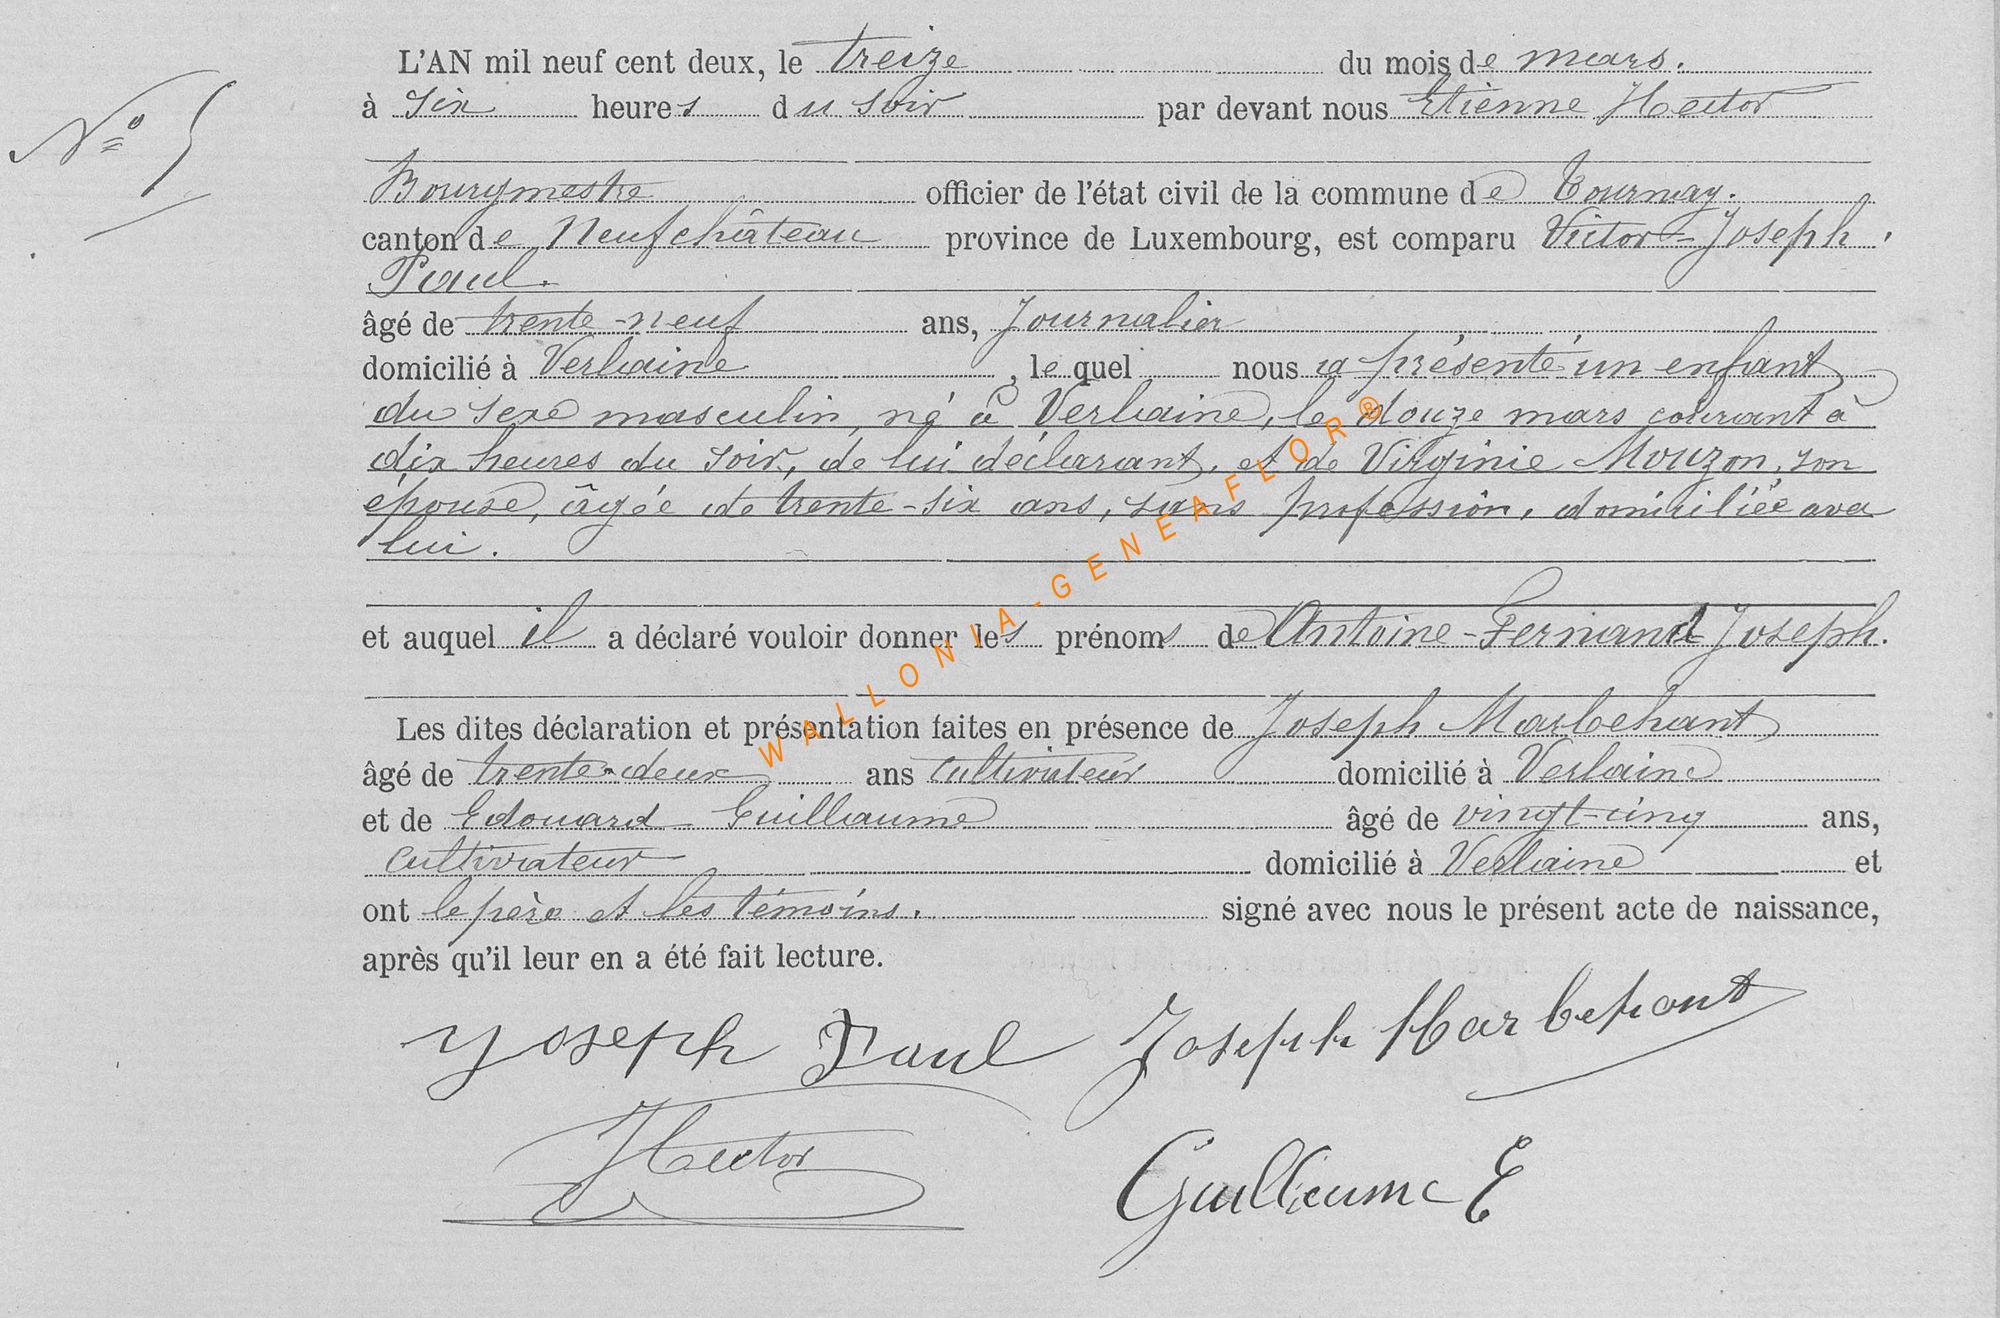 L'AN mil neuf cent deux, le treize du mois de mars.
N° 5
à six heures du soir par devant nous Etienne Hector
Bourgmestre officier de l'état civil de la commune de Tournay.
canton de Neufchâteau province de Luxembourg, est comparu Victor-Joseph
Paul.
âgé de trente-neuf ans, Journalier
domicilié à Verlaine, lequel nous a présenté un enfant
du sexe masculin, né à Verlaine, le douze mars courant à
dix heures du soir, de lui déclarant, et de Virginie Mouzon, son
épouse, âgée de trente-six ans, sans profession, domiciliée avec
lui.
et auquel il a déclaré vouloir donner les prénoms de Antoine-Fernand Joseph.
Les dites déclaration et présentation faites en présence de Joseph Marbehant
âgé de trente-deux ans cultivateur domicilié à Verlaine
et de Edouard Guillaume âgé de vingt-cinq ans,
cultivateur domicilié à Verlaine et
ont le père et les témoins. signé avec nous le présent acte de naissance,
après qu'il leur en a été fait lecture.
Joseph Paul Joseph Marbehant
Hector
Guillaume E
WALLONIA-GENEAFLOR®